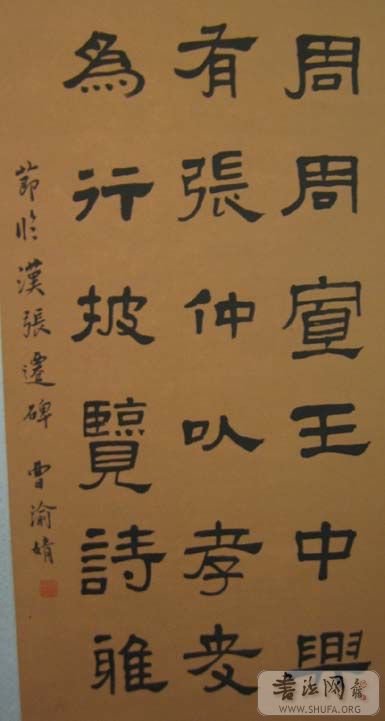 周周宣王中興
有張仲以孝友
為行披覽詩雅
節臨漢張遷碑 曹渝婧
书法网
WWW.SHUFA.ORG